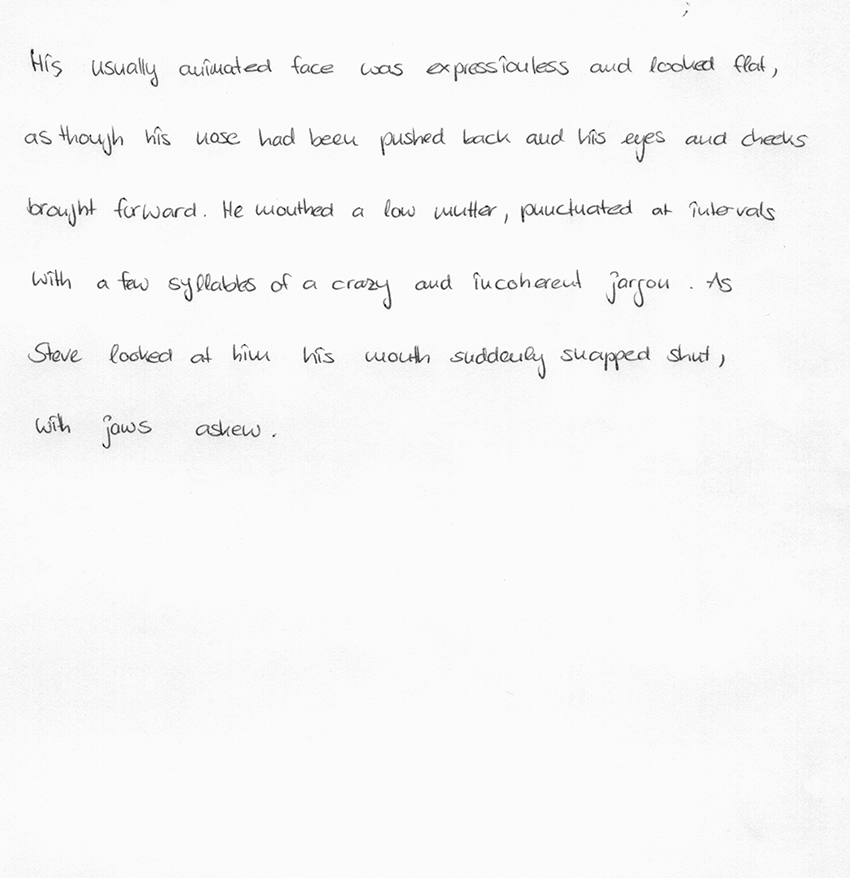 His usually animated face was expressionless and looked flat,
as though his nose had been pushed back and his eyes and cheeks
brought forward. He mouthed a low mutter, punctuated at intervals
with a few syllables of a crazy and incoherent jargon. As
Steve looked at him his mouth suddenly snapped shut,
with jaws askew.